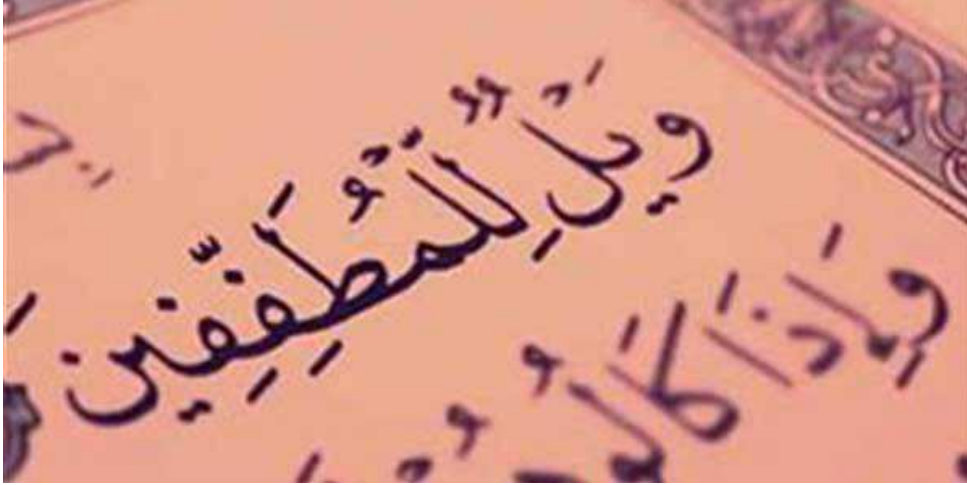 وَيْلٌ لِلْمُطَفِّفِينَ
وَاِذَا كَالُو